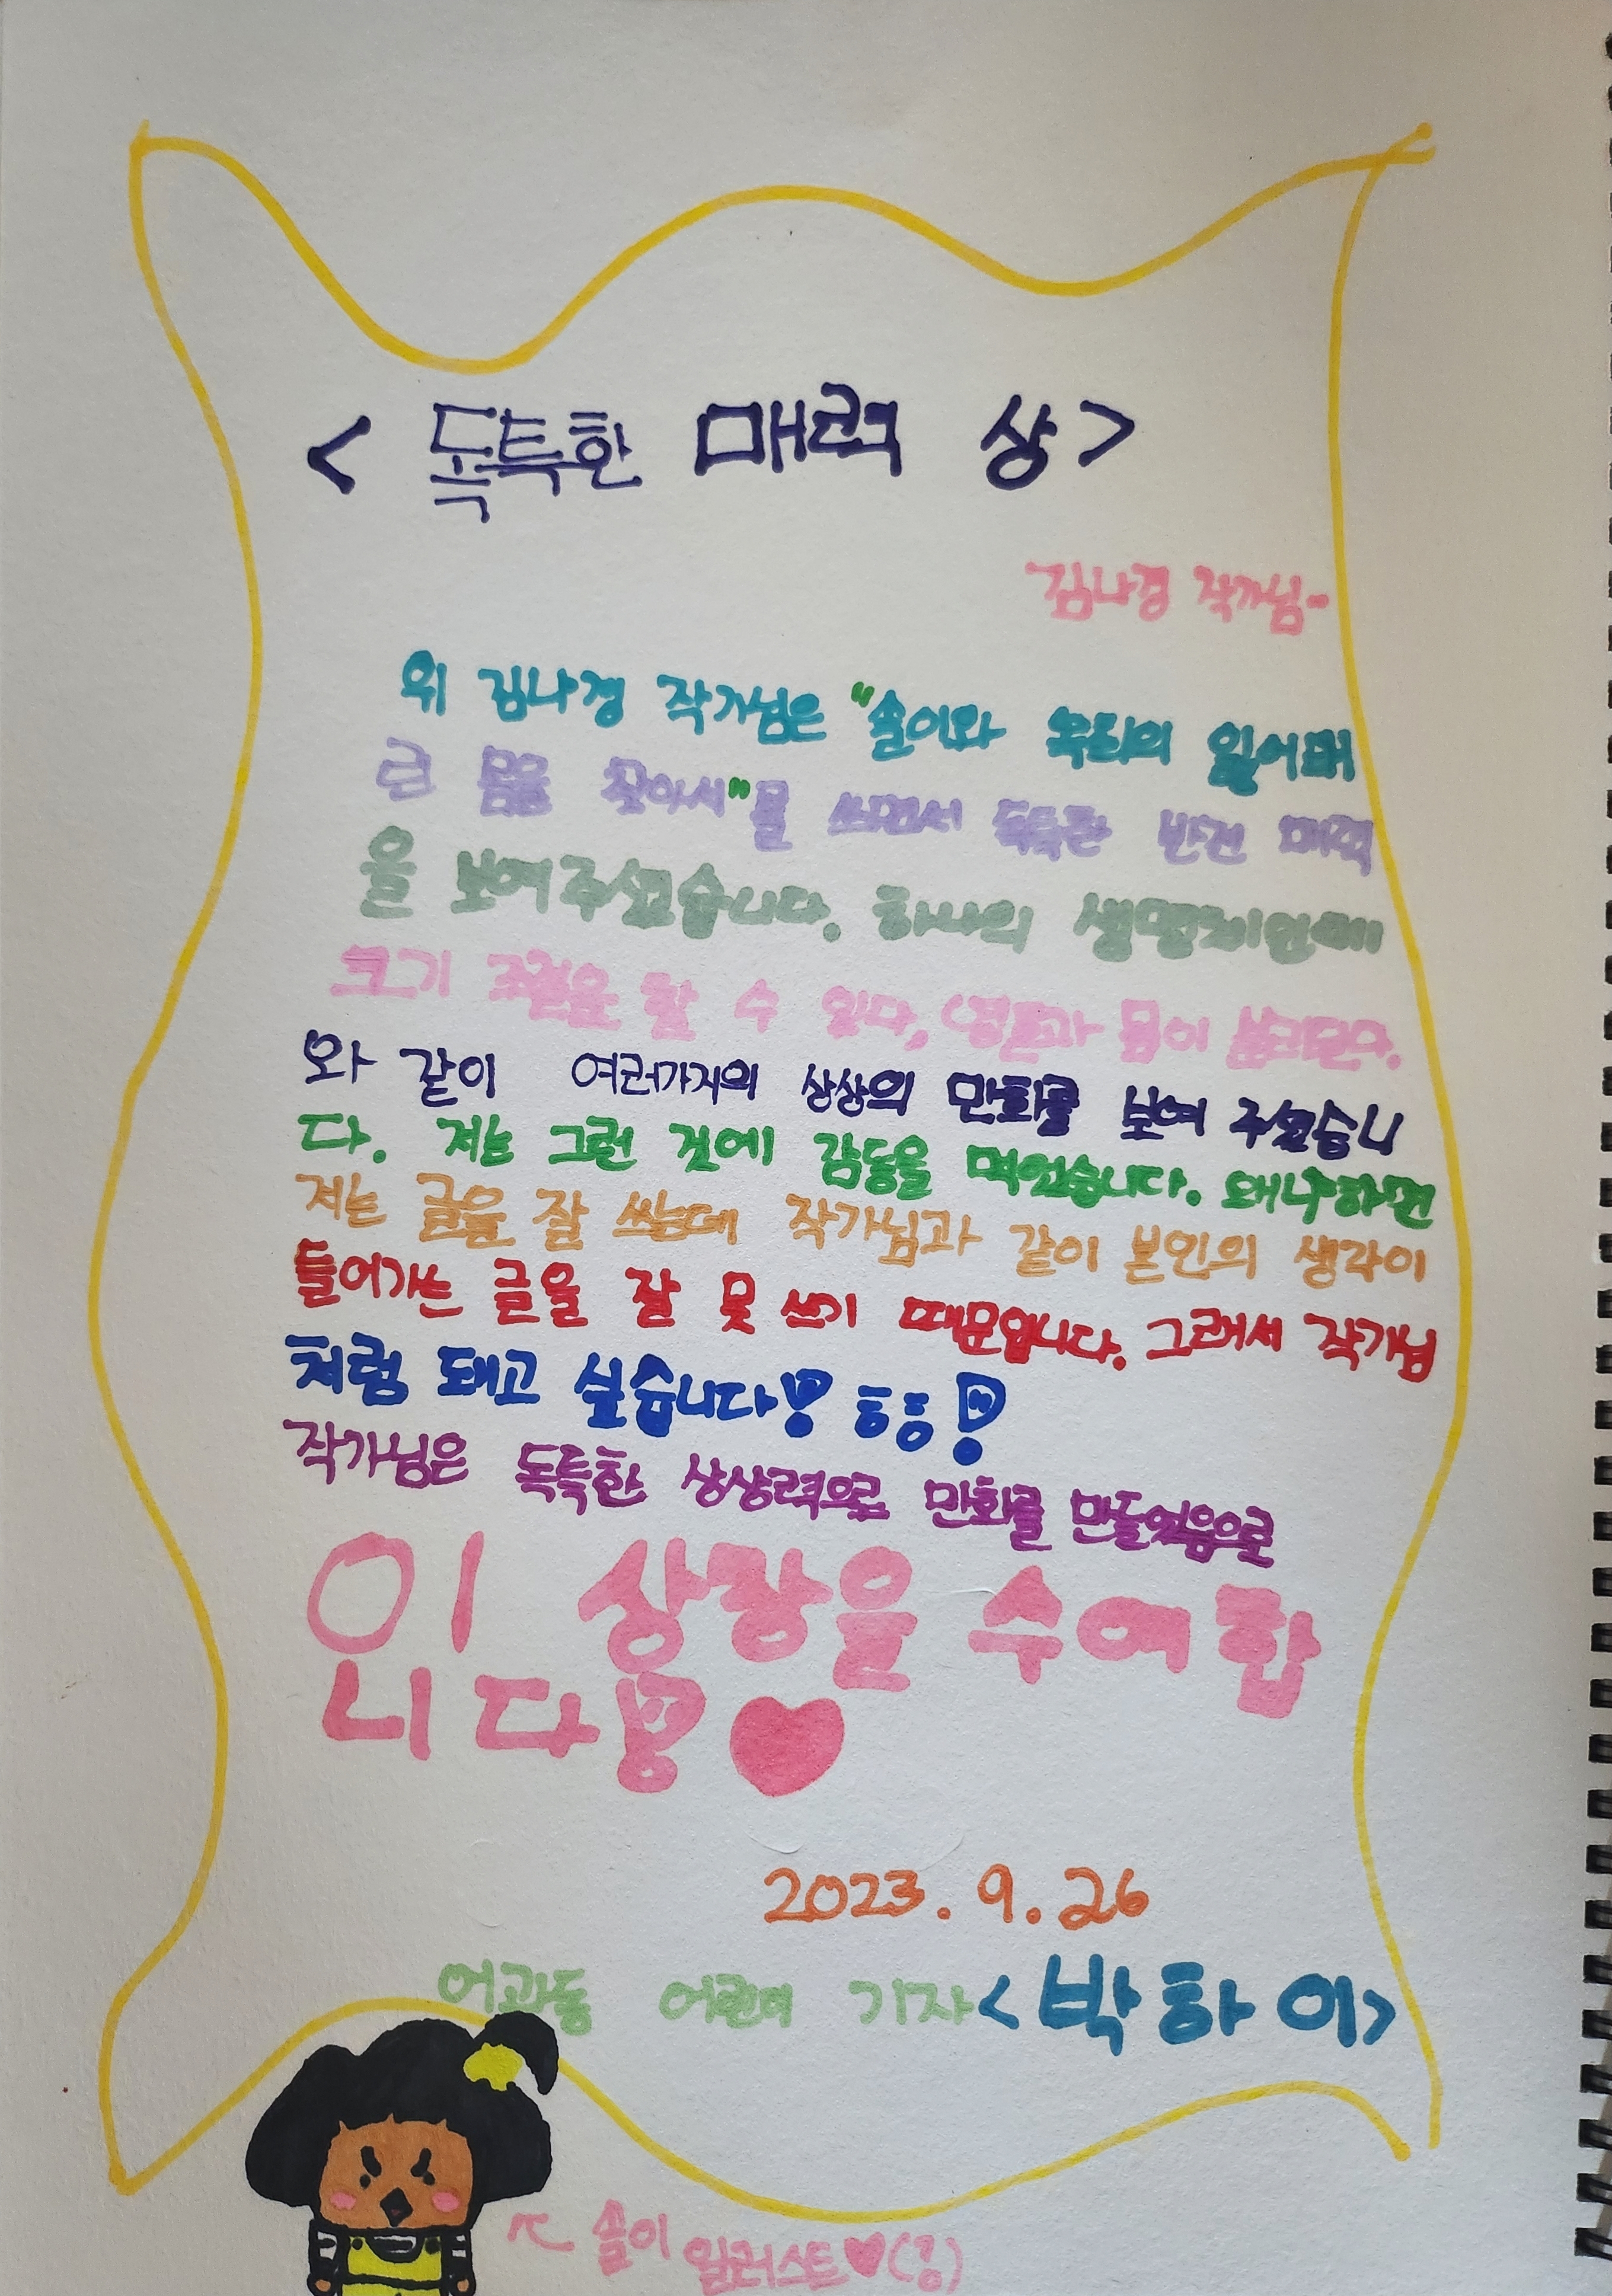 < 독특한 매력 상 >
김나경 작가님-
위 김나경 작가님은 "솔이와 목리의 잃어버
린 몸을 찾아서"를 쓰면서 독특한 반전 매력
을 보여주셨습니다. 하나의 생명체인데
크기 조절을 할 수 있다, (영혼과 몸이 분리된다.
와 같이 여러가지의 상상의 만화를 보여 주셨습니
다. 저는 그런 것에 감동을 먹었습니다. 왜냐하면
저는 글을 잘 쓰는데 작가님과 같이 본인의 생각이
들어가는 글을 잘 못 쓰기 때문입니다. 그래서 작가님
처럼 돼고 싶습니다! ㅎㅎ!
작가님은 독특한 상상력으로 만화를 만들었음으로
이 상장을 수여합
니다! ♥
2023. 9. 26
어과동 어린이 기자 <박하이>
솔이 일러스트♥(?)